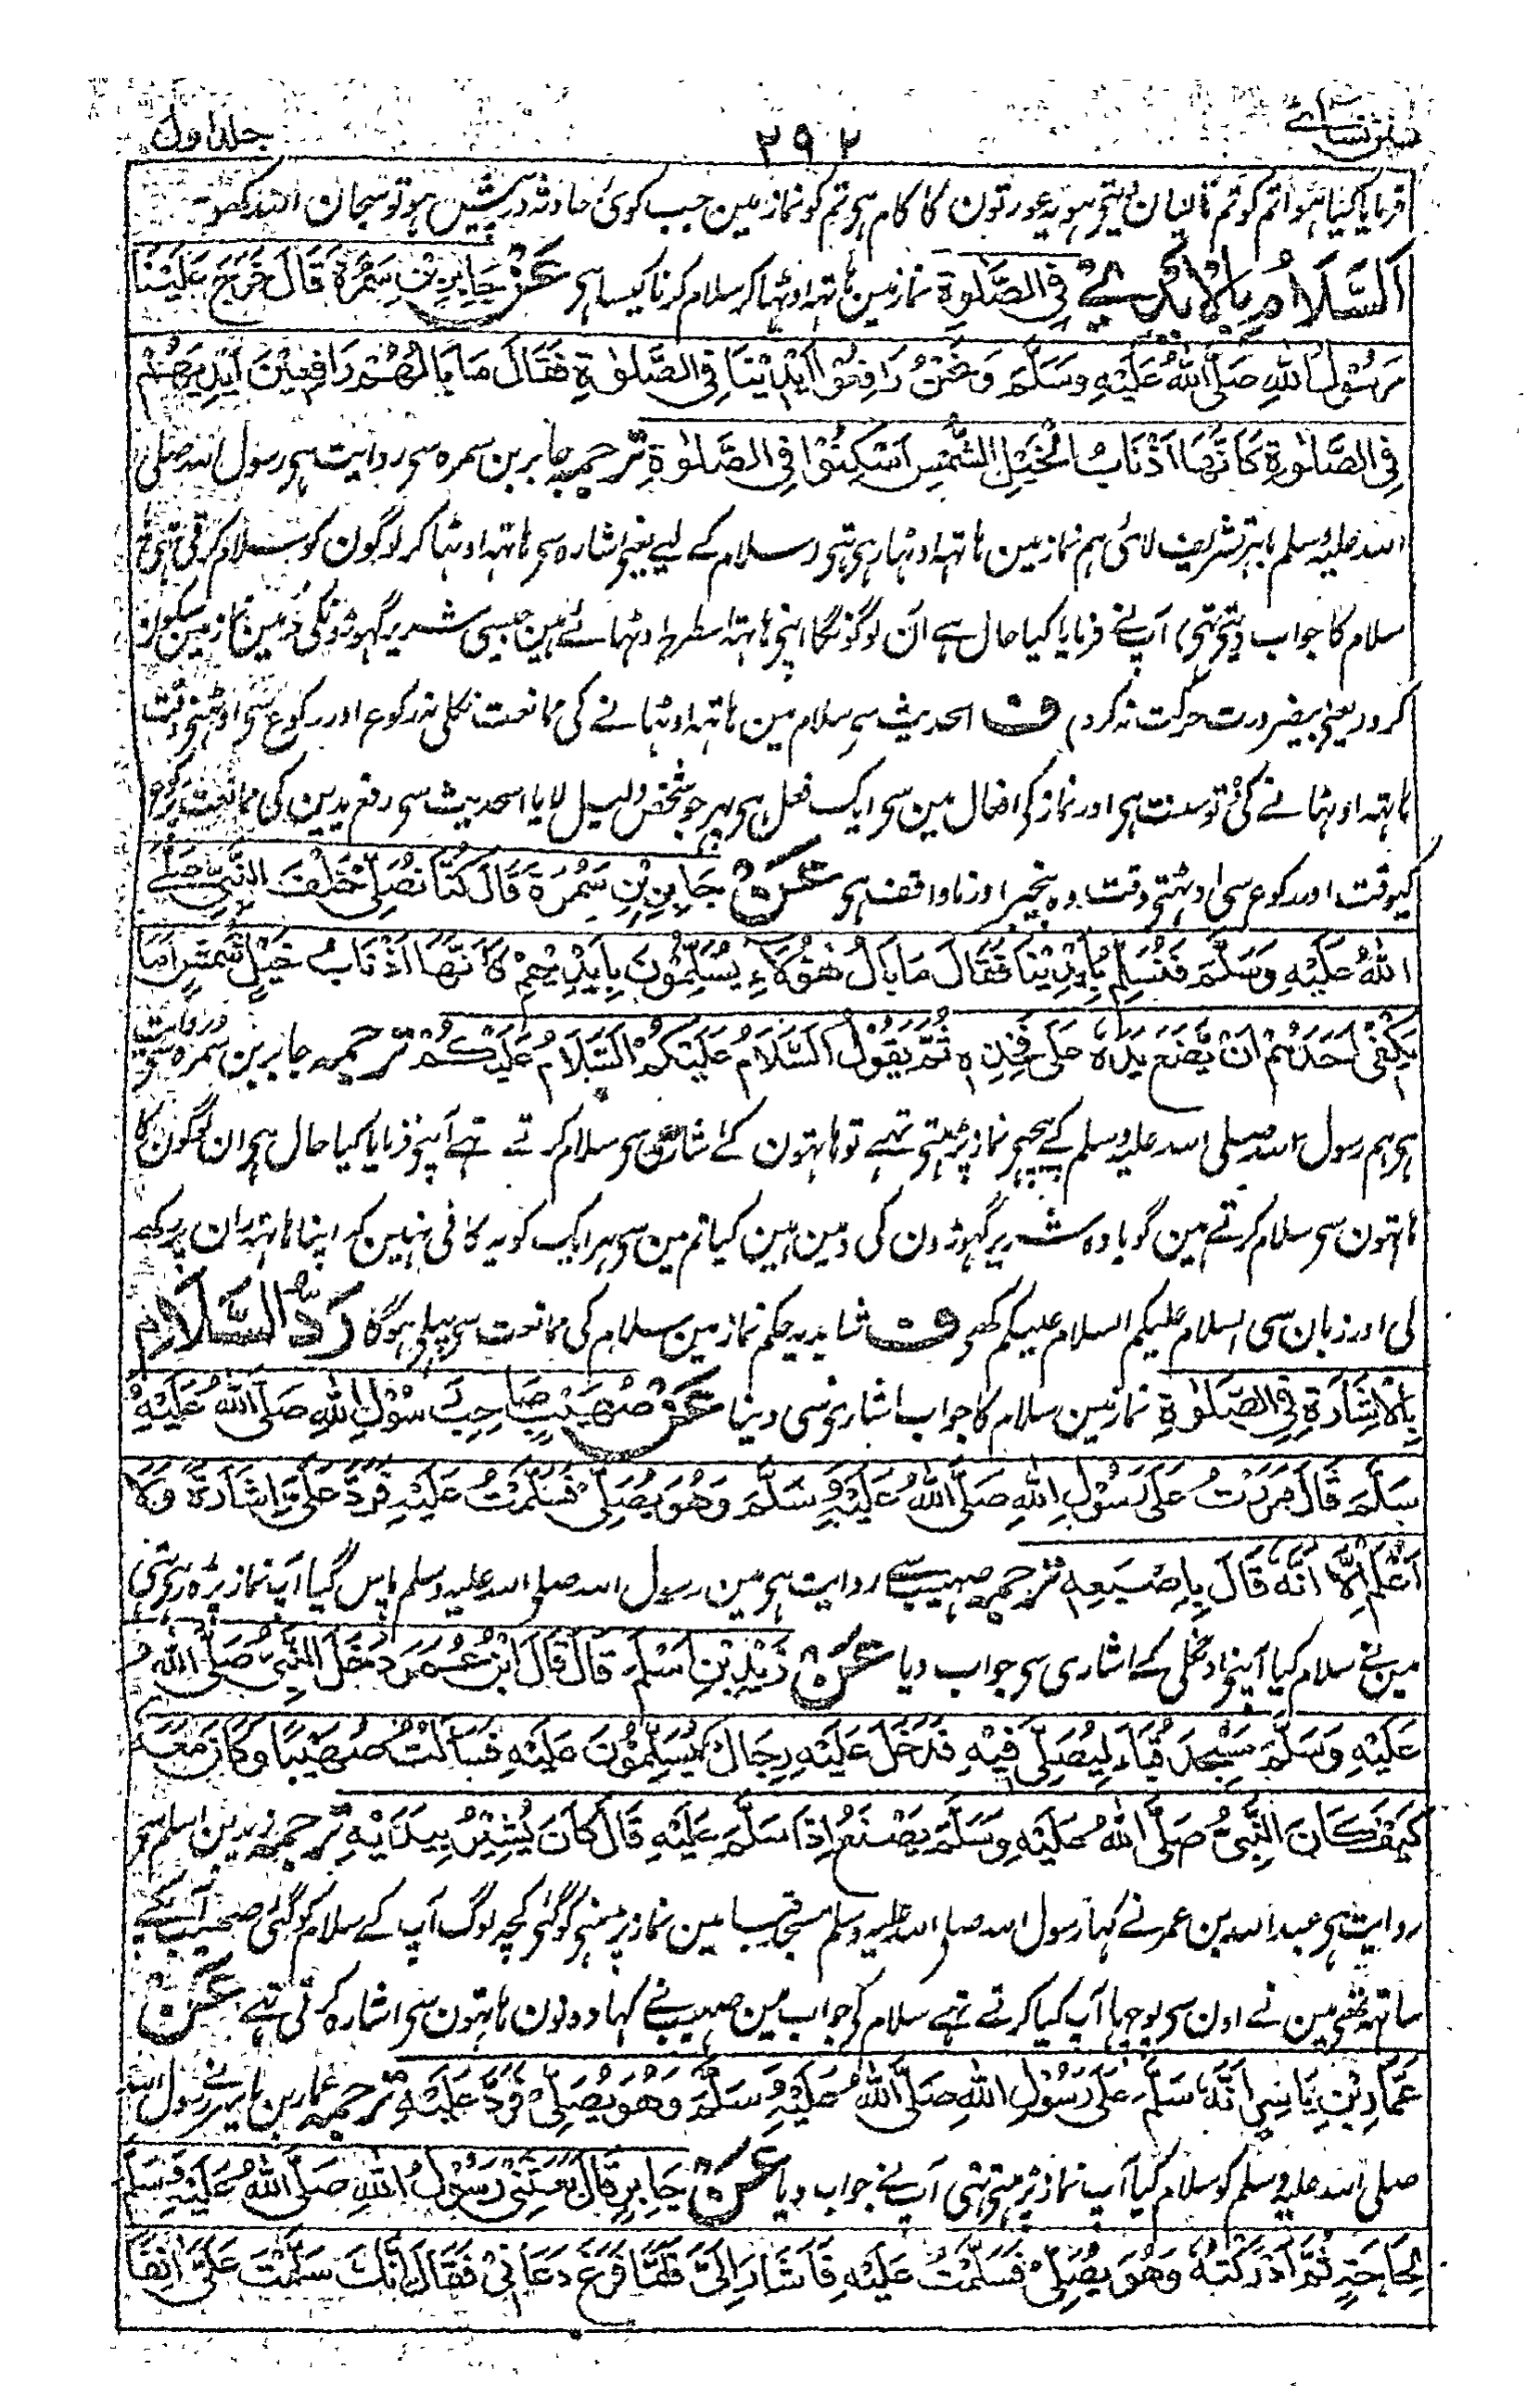 سنن نسائے ۲۹۲ جلد اول
فرمایا کیا ہوا تم کو تم تالیان دیتے ہو یہ عورتون کا کام ہی تم کو نماز مین جب کوئی حادثہ درپیش ہو تو سبحان اللہ کہو
اَلسَّلَامُ بِالْاَیْدِیْ فِی الصَّلٰوۃِ نماز مین ہاتہہ اوٹہا کر سلام کرنا کیسا ہی عَنْ جَابِرِ بْنِ سَمُرَۃَ قَالَ خَرَجَ عَلَیْنَا
رَسُوْلُ اللہِ صَلَّی اللہُ عَلَیْہِ وَسَلَّمَ وَنَحْنُ رَافِعُوْا اَیْدِیْنَا فِی الصَّلٰوۃِ فَقَالَ مَا بَالُھُمْ رَافِعِیْنَ اَیْدِیَھُمْ
فِی الصَّلٰوۃِ کَاَنَّھَا اَذْنَابُ الْخَیْلِ الشُّمْسِ اُسْکُنُوْا فِی الصَّلٰوۃِ ترجمہ جابر بن سمرہ سی روایت ہی رسول اللہ صلی
اللہ علیہ وسلم باہر تشریف لائی ہم نماز مین ہاتہہ اوٹہا رہی تہی (سلام کے لیے یعنی اشارہ سی ہاتہہ اوٹہا کر لوگون کو سلام کرتی تہی یا
سلام کا جواب دیتی تہی) آپ نے فرمایا کیا حال ہے ان لوگونکا اپنی ہاتہہ اسطرح اوٹہائے ہین جیسی شریر گہوڑونکی دُمین نماز مین سکون
کرو (یعنی بیضرورت حرکت نہ کرو) ف اس حدیث سی سلام مین ہاتہہ اوٹہانے کی ممانعت نکلی نہ رکوع اور رکوع سی اوٹہتی وقت
ہاتہہ اوٹہانے کی وہ تو سنت ہی اور نماز کی افعال مین سی ایک فعل ہی پہر جو شخص دلیل لایا اس حدیث سی رفع یدین کی ممانعت پر رکوع
کیوقت اور رکوع سی اوٹہتی وقت وہ بیخبر اور ناواقف ہی عَنْ جَابِرِ بْنِ سَمُرَۃَ قَالَ کُنَّا نُصَلِّیْ خَلْفَ النَّبِیِّ صَلَّی
اللہُ عَلَیْہِ وَسَلَّمَ فَنُسَلِّمُ بِاَیْدِیْنَا فَقَالَ مَا بَالُ ھٰؤُلَاءِ یُسَلِّمُوْنَ بِاَیْدِیْھِمْ کَاَنَّھَا اَذْنَابُ خَیْلٍ شُمْسٍ اَمَا
یَکْفِیْ اَحَدَھُمْ اَنْ یَّضَعَ یَدَہٗ عَلٰی فَخِذِہٖ ثُمَّ یَقُوْلُ اَلسَّلَامُ عَلَیْکُمْ اَلسَّلَامُ عَلَیْکُمْ ترجمہ جابر بن سمرہ سی روایت
ہی ہم رسول اللہ صلی اللہ علیہ وسلم کے پیچہی نماز پڑہتی تہے تو ہاتہون کے اشاری سی سلام کرتے تہے آپنی فرمایا کیا حال ہی ان لوگون کا
ہاتہون سی سلام کرتے ہین گویا وہ شریر گہوڑون کی دمین ہین کیا تم مین سی ہر ایک کو یہ کافی نہین کہ اپنا ہاتہہ ران پر رکہہ
لی اور زبان سی السلام علیکم السلام علیکم کہی ف شاید یہ حکم نماز مین سلام کی ممانعت سی پہلی ہوگا رَدُّ السَّلَامِ
بِالْاِشَارَۃِ فِی الصَّلٰوۃِ نماز مین سلام کا جواب اشاری سی دینا عَنْ صُھَیْبٍ صَاحِبِ رَسُوْلِ اللہِ صَلَّی اللہُ عَلَیْہِ وَ
سَلَّمَ قَالَ مَرَرْتُ عَلٰی رَسُوْلِ اللہِ صَلَّی اللہُ عَلَیْہِ وَسَلَّمَ وَھُوَ یُصَلِّیْ فَسَلَّمْتُ عَلَیْہِ فَرَدَّ عَلَیَّ اِشَارَۃً وَلَا
اَعْلَمُ اِلَّا اَنَّہٗ قَالَ بِاِصْبَعِہٖ ترجمہ صہیب سے روایت ہی مین رسول اللہ صلی اللہ علیہ وسلم پاس گیا آپ نماز پڑہ رہی تہی
مین نے سلام کیا آپنی اونگلی کے اشاری سی جواب دیا عَنْ زَیْدِ بْنِ اَسْلَمَ قَالَ قَالَ ابْنُ عُمَرَ دَخَلَ النَّبِیُّ صَلَّی اللہُ
عَلَیْہِ وَسَلَّمَ مَسْجِدَ قُبَاءَ لِیُصَلِّیَ فِیْہِ فَدَخَلَ عَلَیْہِ رِجَالٌ یُسَلِّمُوْنَ عَلَیْہِ فَسَاَلْتُ صُھَیْبًا وَکَانَ مَعَہٗ
کَیْفَ کَانَ النَّبِیُّ صَلَّی اللہُ عَلَیْہِ وَسَلَّمَ یَصْنَعُ اِذَا سَلَّمَ عَلَیْہِ قَالَ کَانَ یُشِیْرُ بِیَدَیْہِ ترجمہ زید بن اسلم سی
روایت ہی عبد اللہ بن عمر نے کہا رسول اللہ صلی اللہ علیہ وسلم مسجد قبا مین نماز پڑہنی کو گئی کچہہ لوگ آپ کے سلام کو گئی صہیب آپکے
ساتہہ تہی مین نے اون سی پوچہا آپ کیا کرتے تہے سلام کی جواب مین صہیب نے کہا دونون ہاتہون سی اشارہ کرتی تہے عَنْ
عَمَّارِ بْنِ یَاسِرٍ اَنَّہٗ سَلَّمَ عَلٰی رَسُوْلِ اللہِ صَلَّی اللہُ عَلَیْہِ وَسَلَّمَ وَھُوَ یُصَلِّیْ فَرَدَّ عَلَیْہِ ترجمہ عمار بن یاسر نے رسول اللہ
صلی اللہ علیہ وسلم کو سلام کیا آپ نماز پڑہتی تہی آپ نے جواب دیا عَنْ جَابِرٍ قَالَ بَعَثَنِیْ رَسُوْلُ اللہِ صَلَّی اللہُ عَلَیْہِ وَسَلَّمَ
لِحَاجَۃٍ ثُمَّ اَدْرَکْتُہٗ وَھُوَ یُصَلِّیْ فَسَلَّمْتُ عَلَیْہِ فَاَشَارَ اِلَیَّ فَلَمَّا فَرَغَ دَعَانِیْ فَقَالَ اِنَّکَ سَلَّمْتَ عَلَیَّ اٰنِفًا